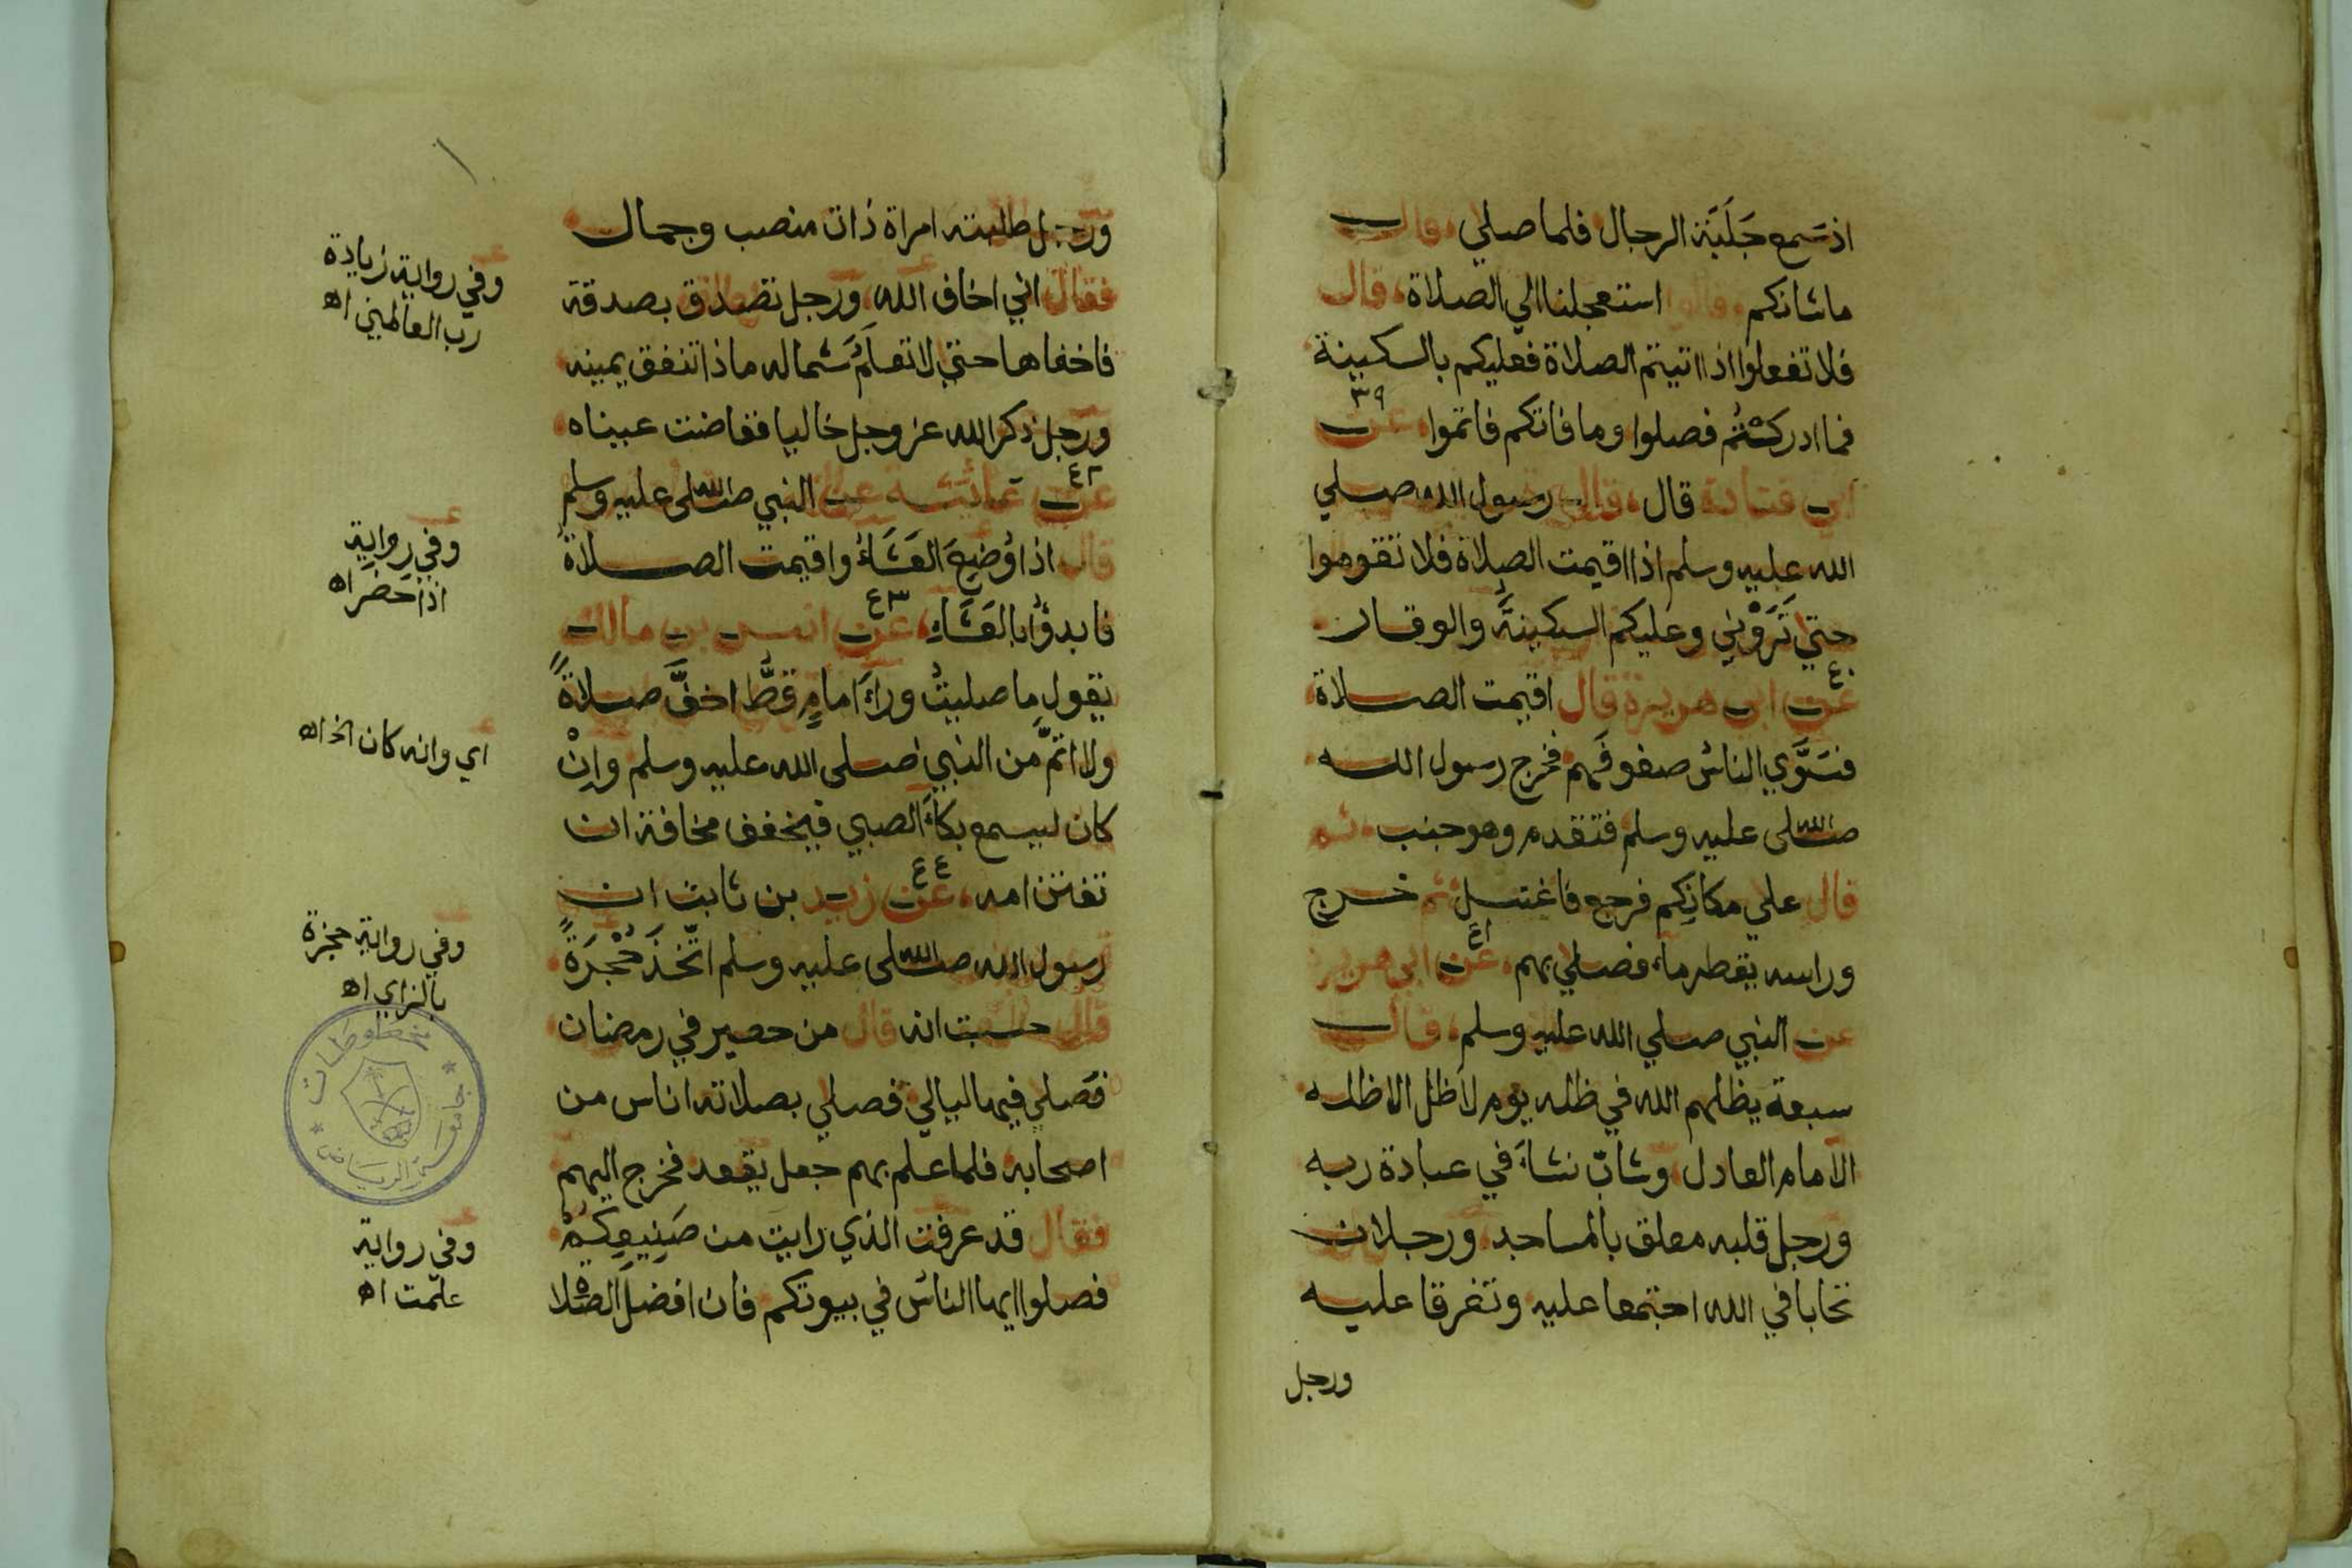 اذ سَمع جَلَبَة الرجال فلما صلي قال
ماشانكم قالوا استعجلنا الي الصلاة قال
فلا تفعلوا اذا اتيتم الصلاة فعليكم بالسكينة
فما ادركتُم فصلوا وما فاتكم فاتموا عن ٣٩
ابي قتادة قال قال رسول الله صلي
الله عليه وسلم اذا اقيمت الصلاة فلا تقوموا
حتي تَرَوْني وعليكم السكينةَ والوقار
عن ٤٠ ابي هريرة قال اقيمت الصلاة
فسَوَّي الناسُ صفوفَهم فخرج رسول الله
صلى الله عليه وسلم فتقدم وهو جنب ثم
قال علي مكانِكم فرجع فاغتسل ثم خرج
وراسه يقطر ماء فصلي بهم عن ٤١ ابي هريرة
عن النبي صلي الله عليه وسلم قال
سبعة يظلهم الله في ظله يوم لا ظل الا ظله
الامام العادل وشابّ نشاءَ في عبادة ربه
ورجل قلبه معلق بالمساجد ورجلان
تحابا في الله اجتمعا عليه وتفرقا عليه
ورجل
ورجل طلبته امراة ذات منصب وجمال
فقال اني اخاف الله ورجل تصدق بصدقة
فاخفاها حتي لا تعلَمَ شماله ماذا تنفق يمينه
ورجل ذكر الله عز وجل خاليا ففاضت عيناه
عن ٤٢ عائشة عن النبي صلى الله عليه وسلم
قال اذا وُضِعَ العَشَاءُ واقيمت الصلاةُ
فابدؤُا بالعَشَاءِ عن ٤٣ انس بن مالك
يقول ما صليتُ وراءَ امامٍ قطُّ اخفَّ صلاةً
ولا اتمَّ من النبي صلى الله عليه وسلم وانْ
كان ليسمع بكاءَ الصبي فيخفف مخافة ان
تفتتن امه عن ٤٤ زيد بن ثابت ان
رسول الله صلى الله عليه وسلم اتّخذَ حُجْرَةً
قال حسبت انه قال من حصير في رمضان
فصلي فيها ليالي فصلي بصلاته اناس من
اصحابه فلما علم بهم جعل يقعد فخرج اليهم
فقال قد عرفت الذي رايت من صَنِيعِكِمْ
فصلوا ايها الناسُ في بيوتكم فان افضلَ الصلاة
وفي رواية زيادة
رب العالمين اه
وفي رواية
اذا حضر اه
اي وانه كان الخ اه
وفي رواية حجزة
بالزاي اه
مخطوطات
جامعة الرياض
وفي رواية
علمت اه